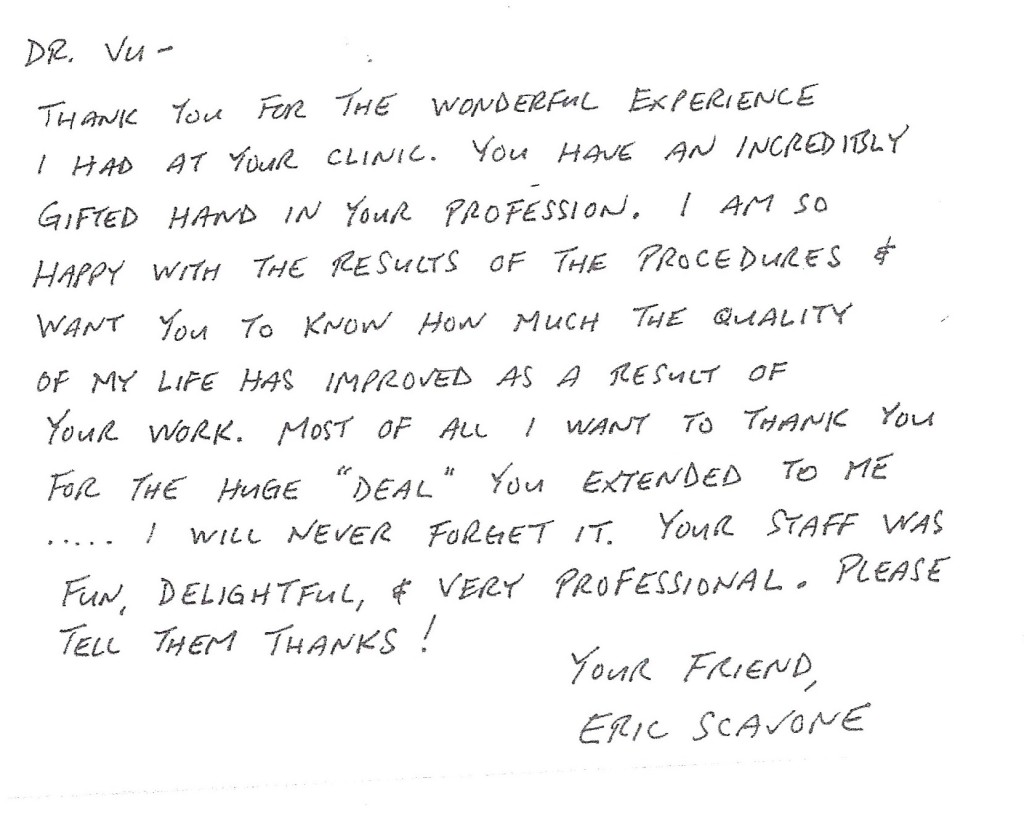 DR. VU -
THANK YOU FOR THE WONDERFUL EXPERIENCE
I HAD AT YOUR CLINIC. YOU HAVE AN INCREDIBLY
GIFTED HAND IN YOUR PROFESSION. I AM SO
HAPPY WITH THE RESULTS OF THE PROCEDURES &
WANT YOU TO KNOW HOW MUCH THE QUALITY
OF MY LIFE HAS IMPROVED AS A RESULT OF
YOUR WORK. MOST OF ALL I WANT TO THANK YOU
FOR THE HUGE "DEAL" YOU EXTENDED TO ME
..... I WILL NEVER FORGET IT. YOUR STAFF WAS
FUN, DELIGHTFUL, & VERY PROFESSIONAL. PLEASE
TELL THEM THANKS!
YOUR FRIEND,
ERIC SCAVONE